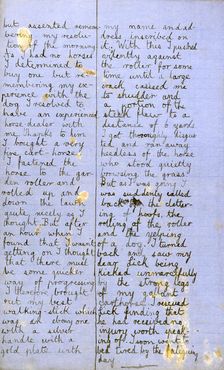 but asserted remem-
bering my resolu-
tion of the morning
As I had no horses
I determined to
buy one but re-
membering my ex-
perience with the
dog I resolved to
have an experienced
horse-dealer with
me. Thanks to him
I bought a very
fine cart horse.
I fastened the
horse to the gar-
den roller and
rolled up and
down the lawn
quite nicely as I
thought. But after
an hour when I
found that I wasn't
getting on I thought
that there must
be some quicker
way of progressing
I therefore brought
out my best
walking-stick which
was an ebony one
with a silver
handle with a
gold plate with
my name and ad-
dress inscribed on
it. With this I pushed
ardently against
the roller for some
time until a large
crack caused me
to shudder and
a portion of the
stick flew to a
distance of 6 yards
I got thoroughly disgus
ted and ran away
heedless of the horse
who stood quietly
browsing the grass
But as I was going I
was suddenly called
back by the clatter-
ing of hoofs, the
rolling of the roller
and the yelping
of a dog. I turned
back and saw my
dear Dick being
kicked unmercifully
by the strong legs
of my gallant
carthorse. I rescued
Dick finding that
he had received no
injury worth speak-
ing of. I soon went to
bed tired by the fatiguing
day